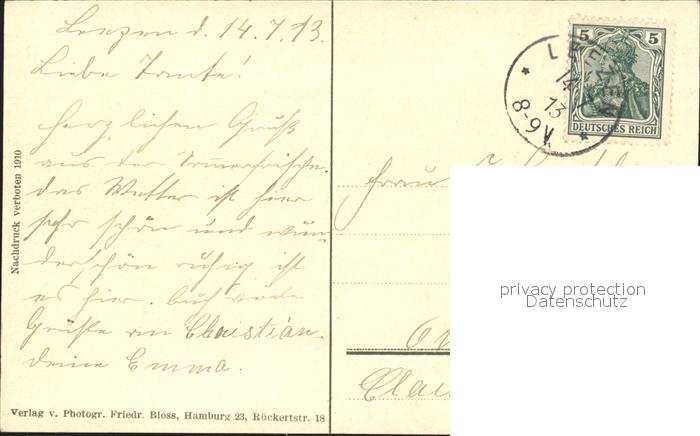 Leezen d. 14.7.13.
Liebe Tante!
Herzlichen Gruß
aus der Sommerfrische.
Das Wetter ist hier
sehr schön und wun-
derschön ruhig ist
es hier. Auch viele
Grüße an Christian.
Deine Emma.
Nachdruck verboten 1910
Verlag v. Photogr. Friedr. Bloss, Hamburg 23, Rückertstr. 18
LEEZEN
14.7.
13
8-9V.
5 5
DEUTSCHES REICH
Frau
privacy protection
Datenschutz